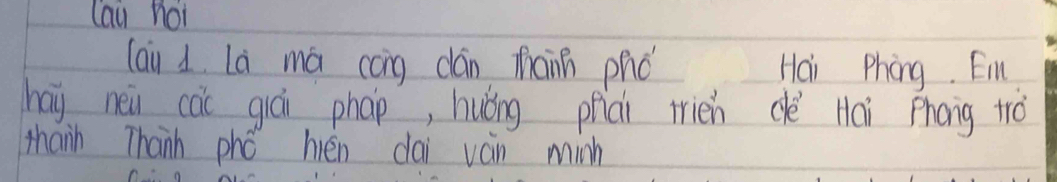 Câu hỏi
Câu 1. Là mỗ công dân Thành phố Hải Phòng. Em
hãy nêu các giải pháp, hướng phát triển để Hải Phòng trở
thành Thành phố hiện đại văn minh